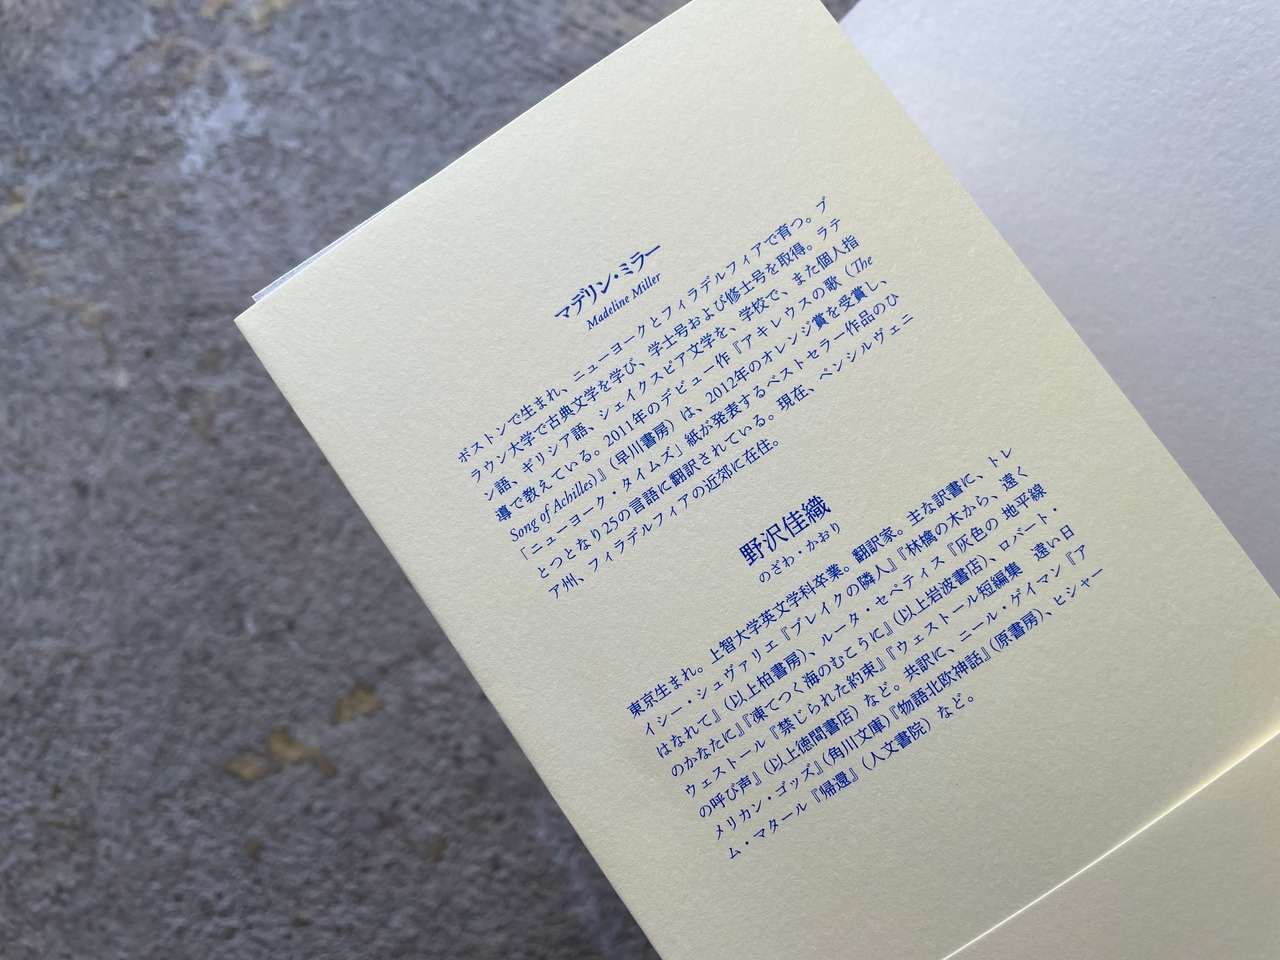 マデリン・ミラー
Madeline Miller
ボストンで生まれ、ニューヨークとフィラデルフィアで育つ。ブ
ラウン大学で古典文学を学び、学士号および修士号を取得。ラテ
ン語、ギリシア語、シェイクスピア文学を、学校で、また個人指
導で教えている。2011年のデビュー作『アキレウスの歌（The
Song of Achilles)』（早川書房）は、2012年のオレンジ賞を受賞し、
「ニューヨーク・タイムズ」紙が発表するベストセラー作品のひ
とつとなり25の言語に翻訳されている。現在、ペンシルヴェニ
ア州、フィラデルフィアの近郊に在住。
野沢佳織
のざわ・かおり
東京生まれ。上智大学英文学科卒業。翻訳家。主な訳書に、トレ
イシー・シュヴァリエ『ブレイクの隣人』『林檎の木から、遠く
はなれて』（以上柏書房）、ルータ・セペティス『灰色の 地平線
のかなたに』『凍てつく海のむこうに』（以上岩波書店）、ロバート・
ウェストール『禁じられた約束』『ウェストール短編集　遠い日
の呼び声』（以上徳間書店）など。共訳に、ニール・ゲイマン『ア
メリカン・ゴッズ』（角川文庫）『物語北欧神話』（原書房）、ヒシャー
ム・マタール『帰還』（人文書院）など。